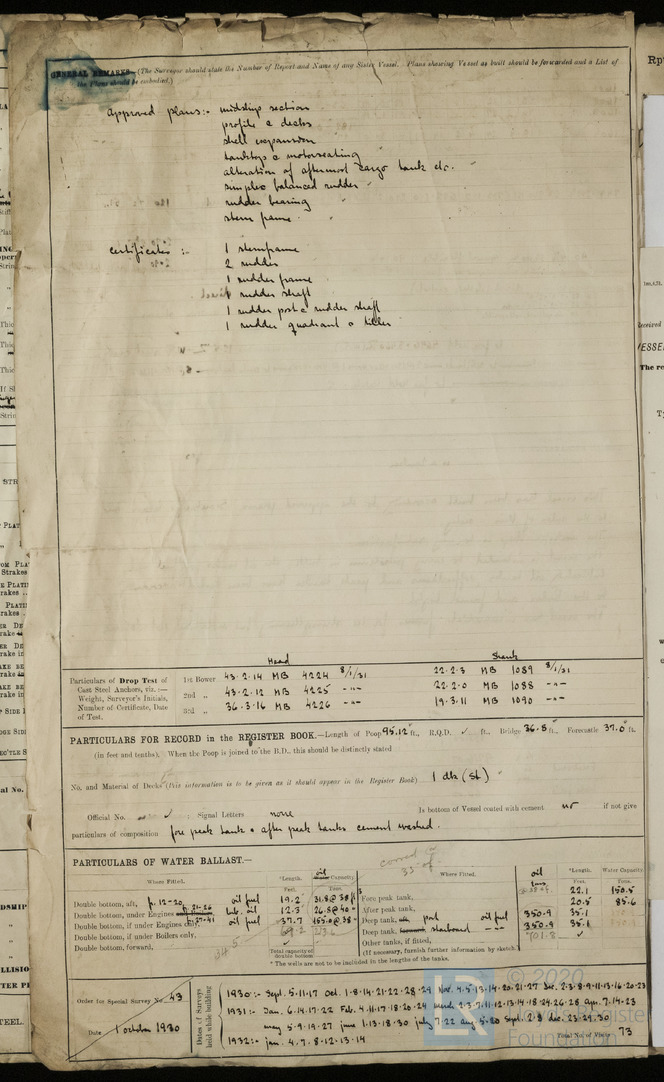 GENERAL REMARKS—(The Surveyor should state the Number of Report and Name of any Sister Vessel. Plans shewing Vessel as built should be forwarded and a List of
the Plans should be embodied.)
approved plans:- midship section
profile & decks
shell expansion
tanktops & motorseating
alteration of aftermost cargo tank etc.
simplex balanced rudder
rudder bearing
stern frame.
Certificates :- 1 sternframe
2 rudder
1 rudder frame
1 rudder shaft
1 rudder post & rudder shaft
1 rudder quadrant & tiller
Head Shank
Particulars of Drop Test of
Cast Steel Anchors, viz. :—
Weight, Surveyor's Initials,
Number of Certificate, Date
of Test.
1st Bower 43-2-14 MB 4224 8/1/31 22-2-3 MB 1089 8/1/31
2nd „ 43-2-12 MB 4225 -"- 22-2-0 MB 1088 -"-
3rd „ 36-3-16 MB 4226 -"- 19-3-11 MB 1090 -"-
PARTICULARS FOR RECORD in the REGISTER BOOK.—Length of Poop 95.12 ft., R.Q.D. ✓ ft., Bridge 36.8 ft., Forecastle 37.0 ft.
(in feet and tenths). When the Poop is joined to the B.D., this should be distinctly stated
No. and Material of Decks (this information is to be given as it should appear in the Register Book) 1 dk (St)
Official No. ✓ Signal Letters none Is bottom of Vessel coated with cement no if not give
particulars of composition fore peak tank & after peak tanks cement washed.
PARTICULARS OF WATER BALLAST.—
Where Fitted. *Length. oil Capacity Where Fitted. oil *Length. Water Capacity.
Feet. Tons. Feet. Tons.
Double bottom, aft, fr. 12-20 oil fuel 19.2 Fore peak tank, 22.1 150.5
Double bottom, under Engines lub. oil 12.3 After peak tank, 20.5 85.6
Double bottom, if under Engines only, oil fuel 37.7 Deep tank, port oil fuel 350.9 35.1
Double bottom, if under Boilers only, Deep tank, starboard -"- 350.9 35.1
Double bottom, forward, ✓ Total capacity of double bottom Other tanks, if fitted, ✓
(If necessary, furnish further information by sketch.)
* The wells are not to be included in the lengths of the tanks.
Order for Special Survey No. 43
Date 1 october 1930
Dates of Surveys
held while building
1930:- Sept. 5.11.17 Oct. 1.8.14.21.22.28.29 Nov. 4.5.13.14.20.21.27 Dec. 2.3.8.9.11.13.16.20.23
1931:- Jan. 6.14.17.22 Feb. 4.11.17.18.20.24 March 2.3.7.11.12.13.14.18.24.26.28 Apr. 7.14.23
may 5.9.19.27 june 1.13.18.30 july 7.22 aug. 5.20 Sept. 2.8 dec. 23.29.30
1932:- jan. 4.7.8.12.13.14
Total No. of Visits 73
LR
© 2020
Lloyd's Register
Foundation